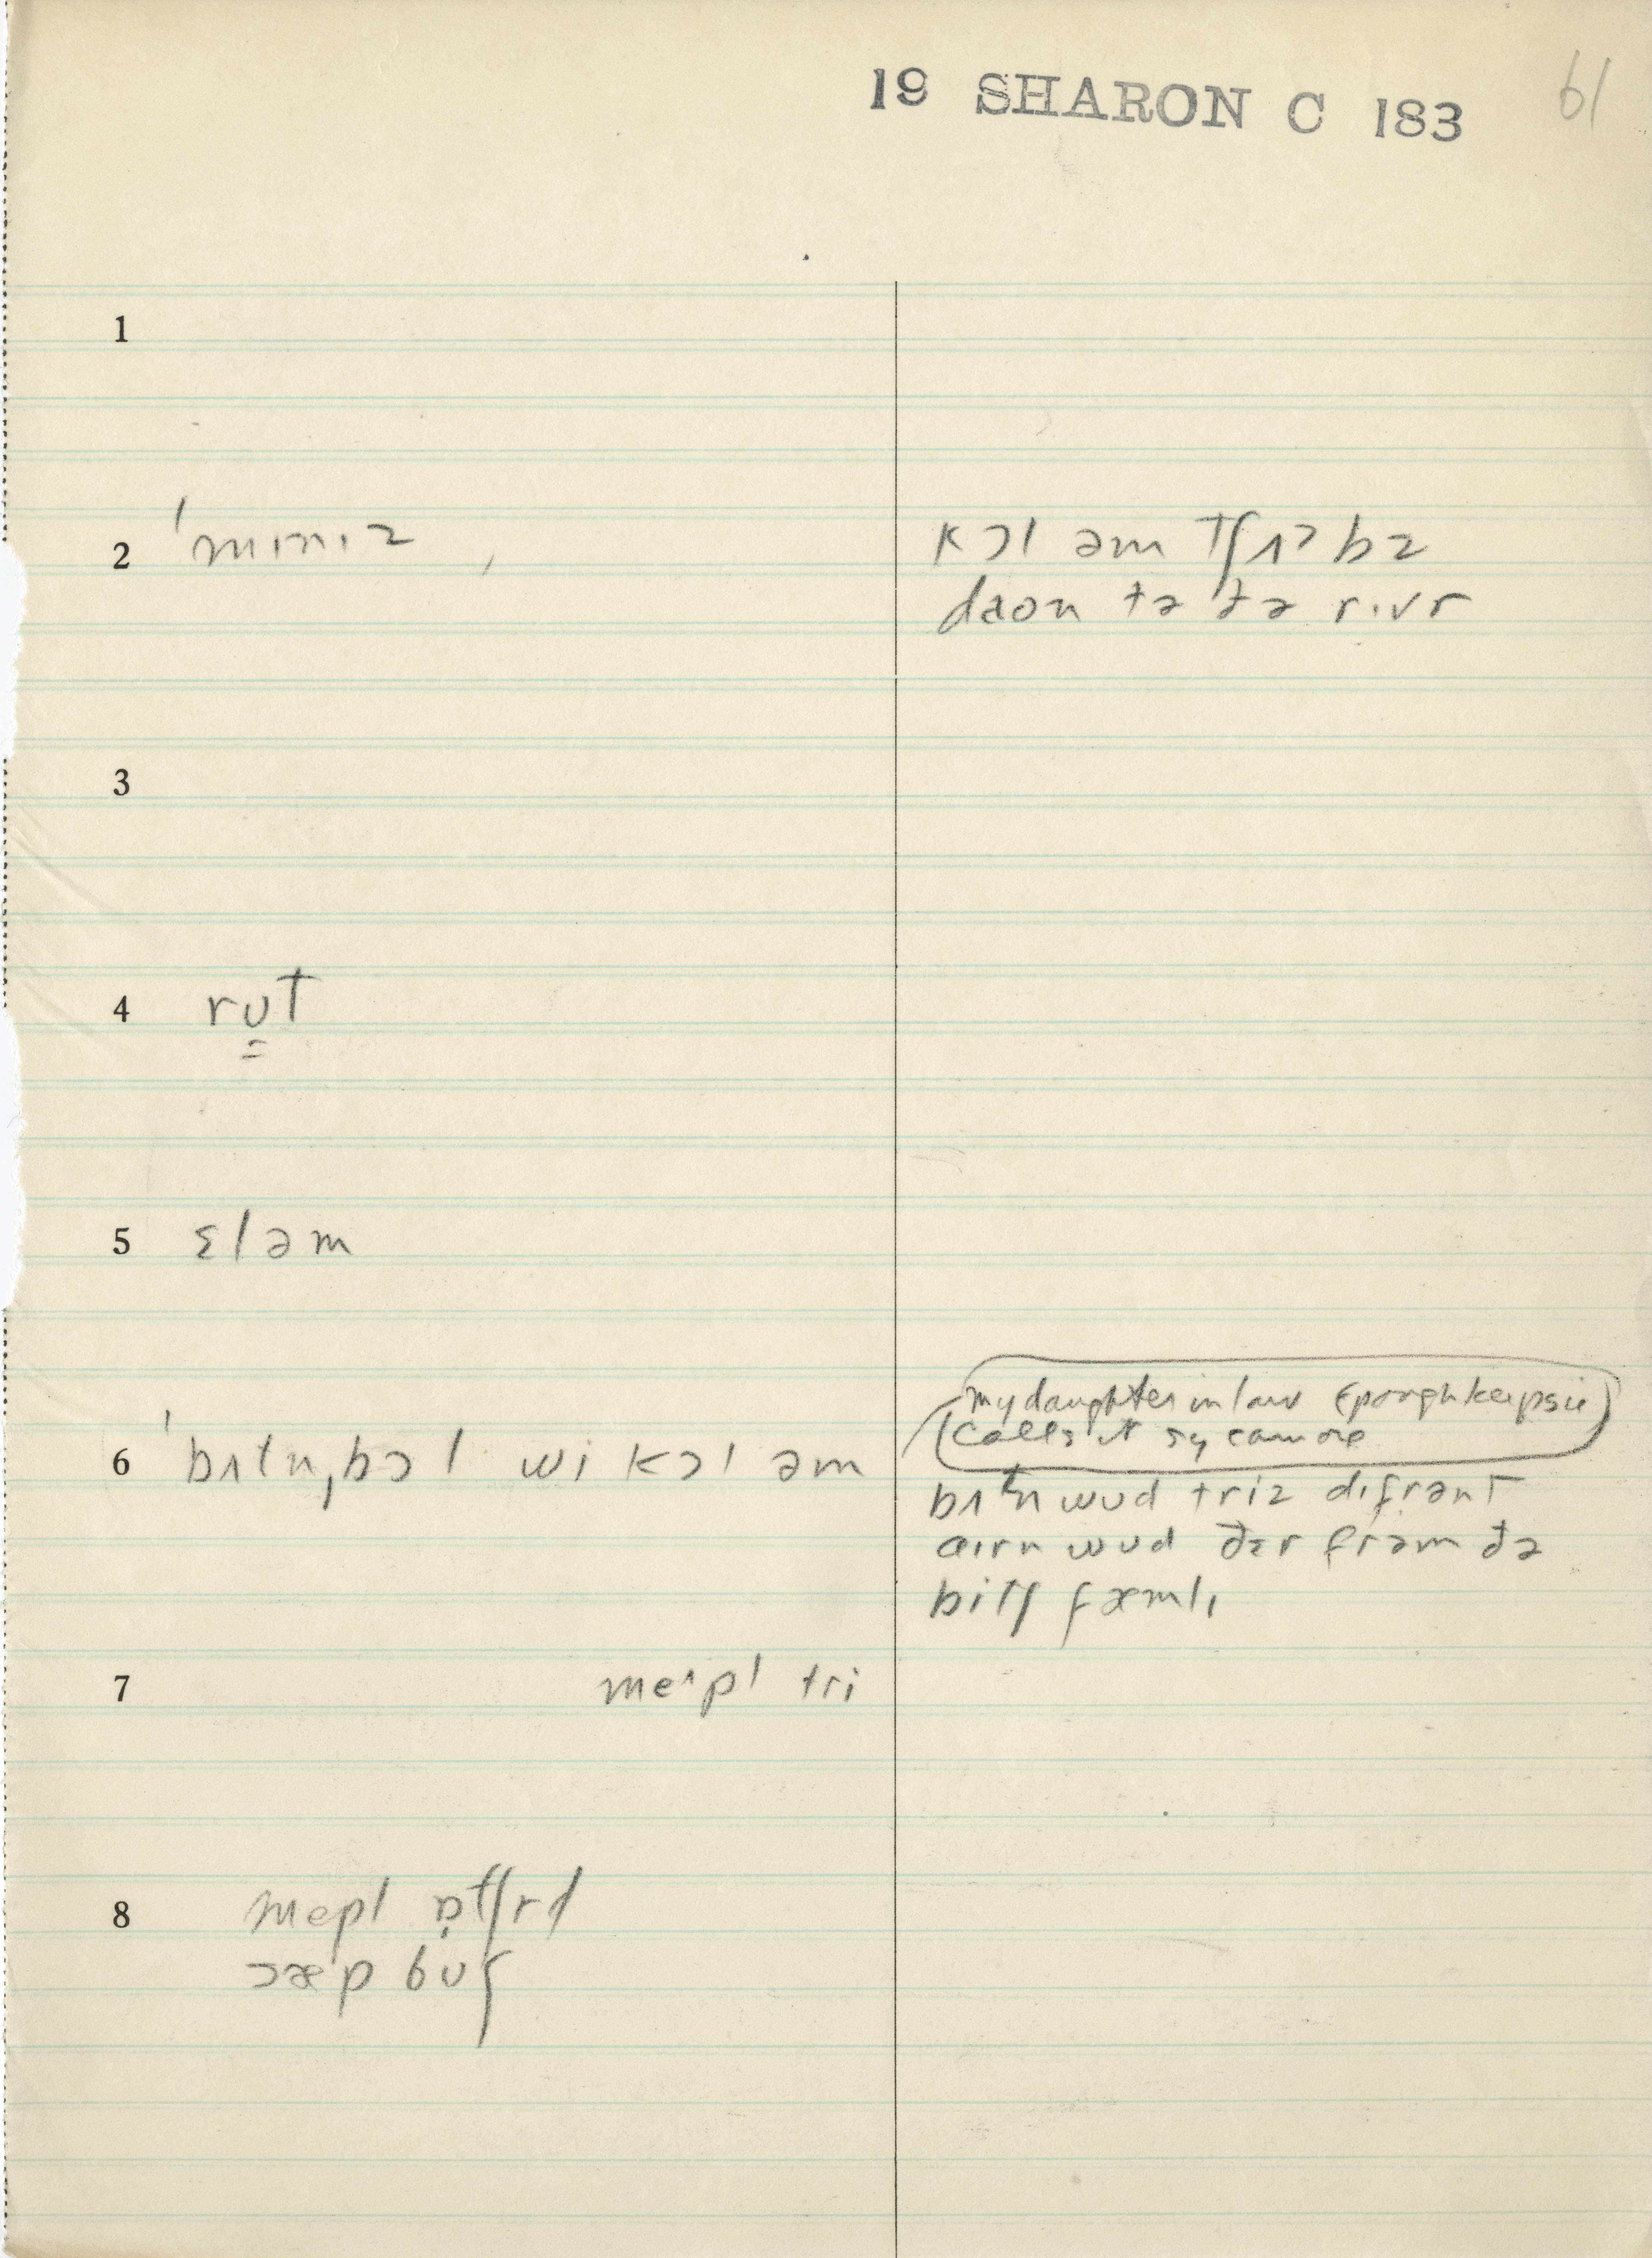 19 SHARON C 183
61
1
2 ˈmɪnɪz
kɔl əm tʃʌbz
daon tə ðə rɪvr
3
4 rʊt
5 ɛləm
6 ˈbʌtn̩ˌbɔl wi kɔl əm
my daughter in law (poughkeepsie)
calls it sycamore
bʌtn wʊd triz dɪfrənt
aɪrn wʊd ðɛr frəm ðə
bitʃ fæmlɪ
7 meɪpl tri
8 mepl ɒtʃrd
sæp bʊʃ